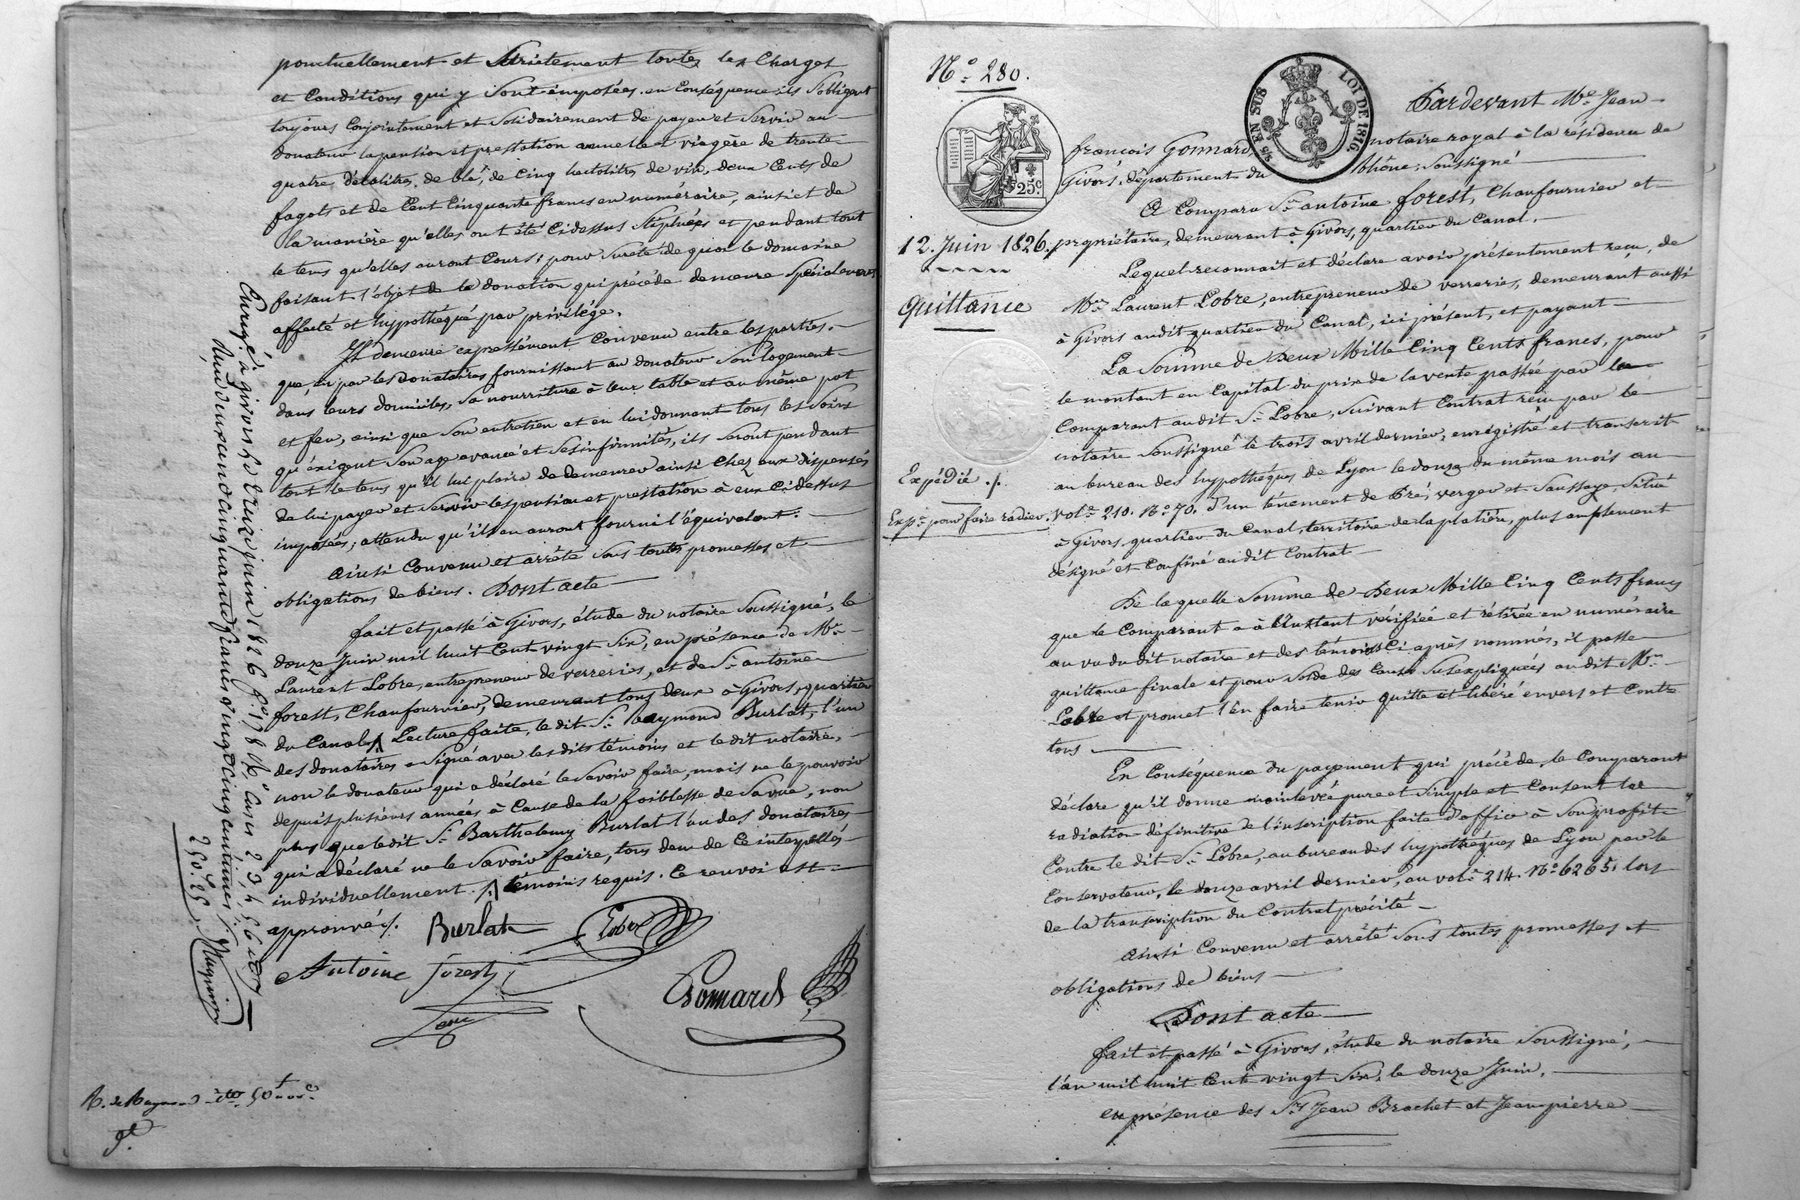 ponctuellement et strictement toutes les charges
et conditions qui y sont imposées. en conséquence ils s'obligent
toujours conjointement et solidairement de payer et servir au
donateur la pension et prestation annuelle et viagère de trente
quatre décalitres de blé, de cinq hectolitres de vin, deux cents de
fagots et de cent cinquante francs en numéraire, ainsi et de
la manière qu'elles ont été cidessus stipulées et pendant tout
le tems qu'elles auront cours; pour sureté de quoi le domaine
faisant l'objet de la donation qui précède demeure spécialement
affecté et hypothéqué par privilége.
Il demeure expressément convenu entre les parties.
que, si par les donataires fournissant au donateur son logement
dans leurs domiciles, sa nourriture à leur table et au même pot
et feu, ainsi que son entretien et en lui donnant tous les soins
qu'exigent son age avancé et ses infirmités, ils seront pendant
tout le tems qu'il lui plaira de demeurer ainsi chez eux dispensés
de lui payer et servir les pension et prestation à eux cidessus
imposées, attendu qu'ils en auront fourni l'équivalent.
ainsi convenu et arrêté sous toutes promesses et
obligations de biens. Dont acte
fait et passé à Givors, étude du notaire soussigné, le
douze juin mil huit cent vingt six, en présence de Mr.
Laurent Lobre, entrepreneur de verreries, et de Sr. antoine
forest, chaufournier, demeurant tous deux à Givors, quartier
du Canal Lecture faite, le dit Sr. Raymond Burlat, l'un
des donataires a signé avec les dits témoins et le dit notaire,
non le donateur qui a déclaré le savoir faire, mais ne le pouvoir
depuis plusieurs années à cause de la faiblesse de sa vue, non
plus que le dit Sr. Barthelemy Burlat l'un des donataires
qui a déclaré ne le savoir faire, tous deux de ce interpellés
individuellement. témoins requis. Ce renvoi est
approuvé.
Burlat Lobre
Antoine forest
Gonnard
Enregé à givors le douze juin 1826 fo. 178
Reçu deux cent cinquante francs vingt cinq centimes
250. 25.
No. 280.
12. Juin 1826.
Quittance
Expédié.
Expn. pour faire radier.
25c.
5/5 EN SUS LOI DE 1816
Pardevant Me. Jean
françois Gonnard, notaire royal à la résidence de
Givors, département du Rhône, soussigné
A Comparu Sr. antoine forest, chaufournier et
propriétaire, demeurant à Givors, quartier du Canal.
Lequel reconnait et déclare avoir présentement reçu, de
Mr. Laurent Lobre, entrepreneur de verreries, demeurant aussi
à Givors audit quartier du Canal, ici présent, et payant
La somme de Deux Mille cinq cents francs, pour
le montant en capital du prix de la vente passée par le
comparant audit Sr. Lobre, suivant contrat reçu par le
notaire soussigné le trois avril dernier, enregistré et transcrit
au bureau des hypothèques de Lyon le douze du même mois au
vol. 210. No. 70. d'un ténement de Pré, verger et saussaye, situé
à Givors, quartier du Canal, territoire de la platière, plus amplement
désigné et confiné audit contrat
De laquelle somme de Deux Mille cinq cents francs
que le comparant a à l'instant vérifiée et retirée en numéraire
au vu du dit notaire et des témoins ci après nommés, il passe
quittance finale et pour solde des causes susexpliquées audit Mr.
Lobre et promet l'en faire tenir quitte et libéré envers et contre
tous
En conséquence du payement qui précéde, le comparant
déclare qu'il donne mainlevée pure et simple et consent la
radiation définitive de l'inscription faite d'office à son profit
contre le dit Sr. Lobre, au bureau des hypothèques de Lyon par le
Conservateur, le douze avril dernier, au vol. 214. No. 6265. lors
de la transcription du contrat précité
ainsi convenu et arrêté sous toutes promesses et
obligations de biens
Dont acte
fait et passé à Givors, étude du notaire soussigné,
l'an mil huit cent vingt six, le douze Juin.
en présence des Srs Jean Brachet et Jean pierre